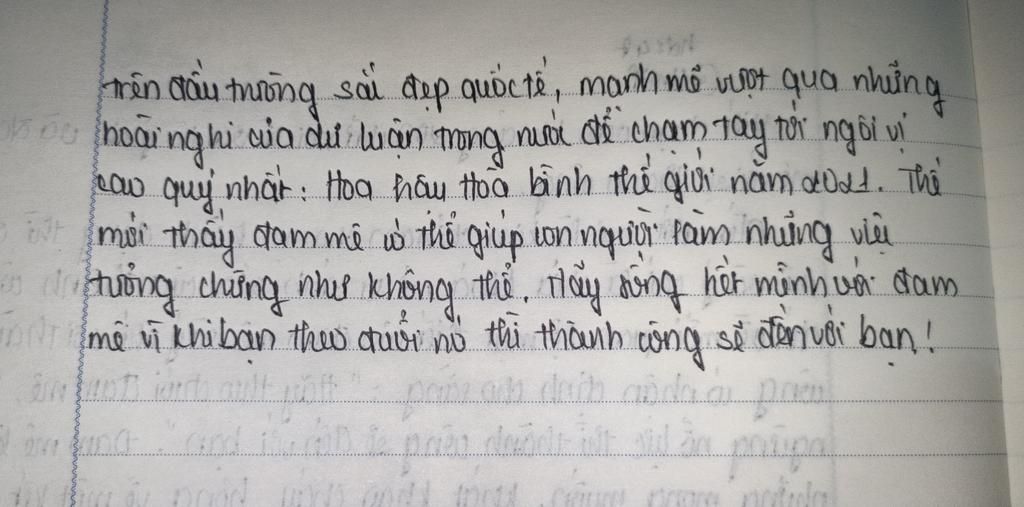 trên đấu trường sắi đẹp quốc tế, manh mẽ vượt qua những
hoài nghi của dư luận trong nước để chạm tay tới ngôi vị
cao quý nhất: Hoa hâu Hoà bình thế giới năm 2021. Thế
mới thấy đam mê có thể giúp con người làm những việc
tưởng chừng như không thể. Hãy sống hết mình với đam
mê vì khi bạn theo đuổi nó thì thành công sẽ đến với bạn!